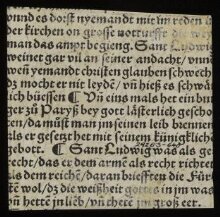 und es dorst nyemandt mit im reden b
der kirchen on grosse notturfft die wey
man das ampt begieng. Sant Ludwig
weinet gar vil an seiner andacht / vnd
wen nyemandt christen glauben schwech
dz mocht er nit leyde / vñ hieß es schwär
lich büessen ¶ Vñ eins mals het ein bur
ger zů Paryß bey gott lästerlich geschwo
ren / da můst man jm seinen leib brennen
als er gesetzt het mit seinen künigklichen
gebott. ¶ Sant Ludwig was als ge
recht / das er dem armē als recht richtet
als dem reichē / daran biesfftē die Für
wol / dz die weißheit gottes in jm was
vñ hettē jn lieb / vñ chetē jm groß eer.